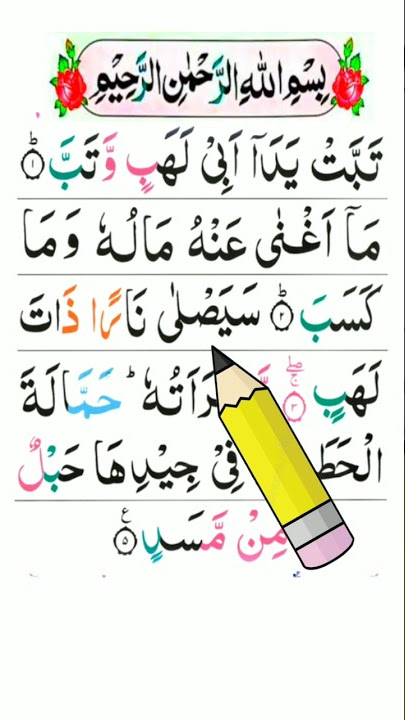 بِسْمِ اللهِ الرَّحْمٰنِ الرَّحِيْمِ
تَبَّتْ يَدَاۤ اَبِىْ لَهَبٍ وَّ تَبَّ ؕ﴿۱﴾
مَاۤ اَغْنٰى عَنْهُ مَالُهٗ وَ مَا
كَسَبَ ؕ﴿۲﴾ سَيَصْلٰى نَارًا ذَاتَ
لَهَبٍ ۚۖ﴿۳﴾ ؕ حَمَّالَةَ
فِىْ جِيْدِهَا حَبْلٌ
مِنْ مَّسَدٍ ﴿۵﴾ ع